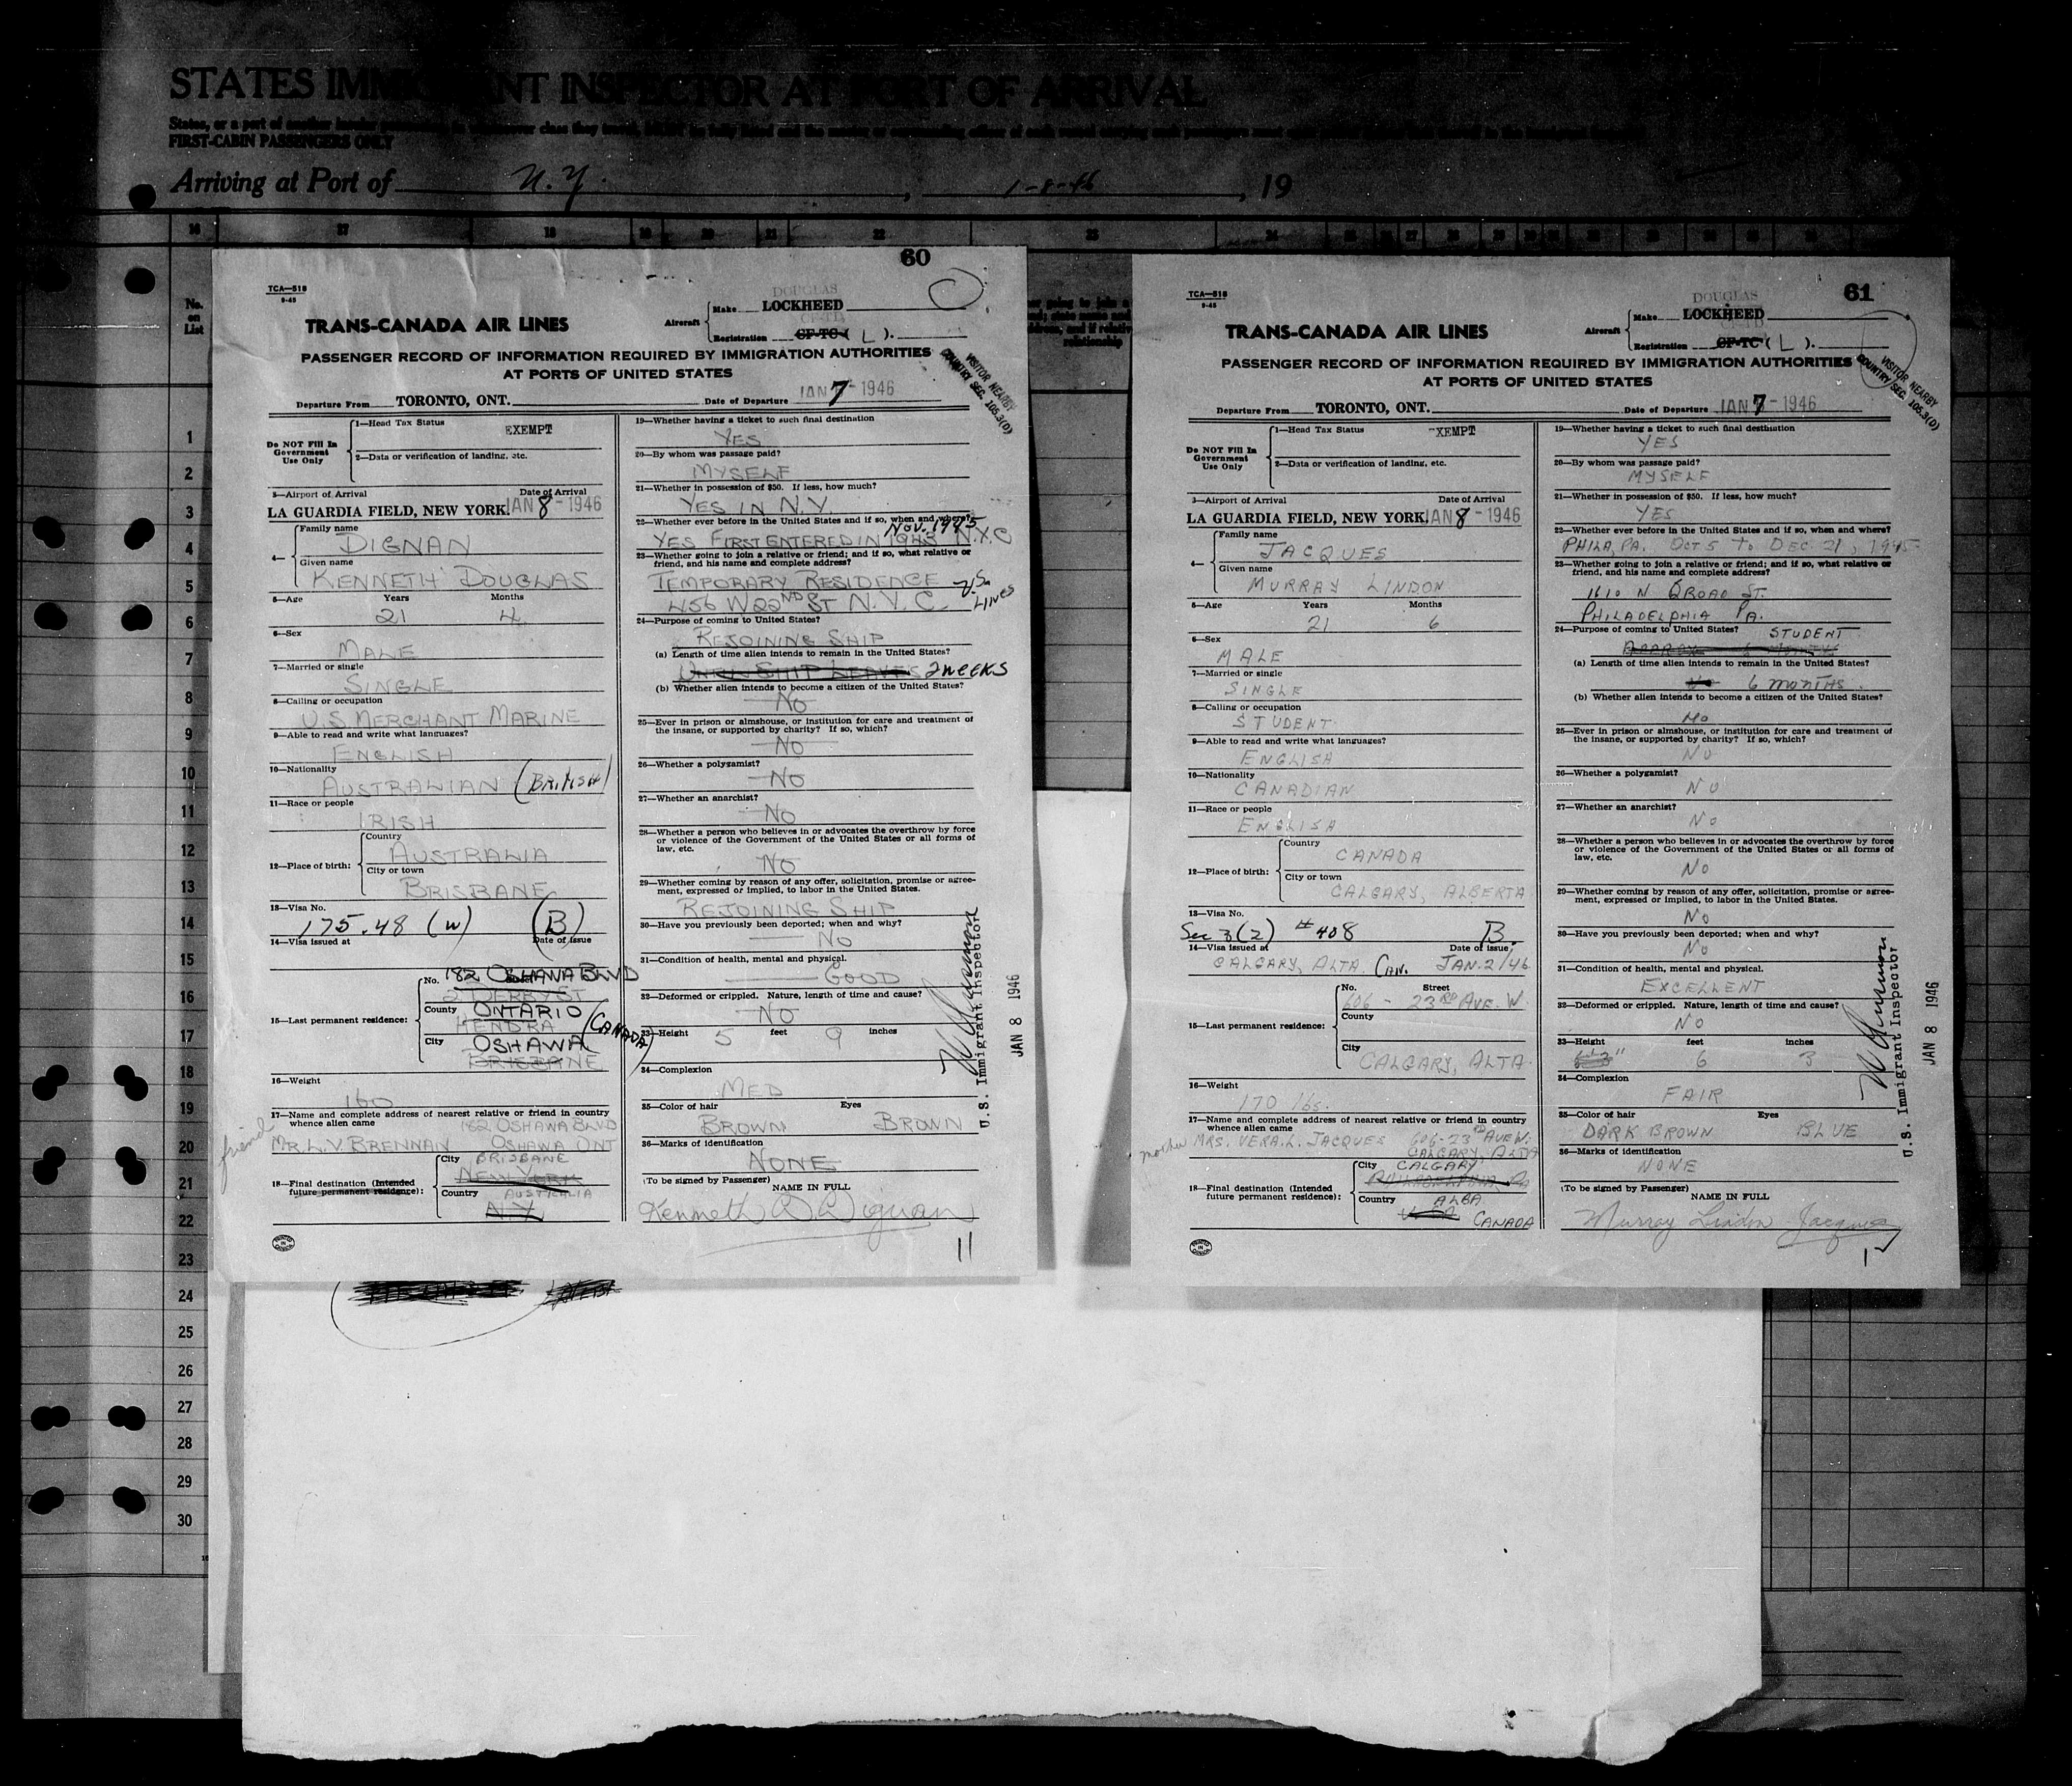 STATES IMMIGRANT INSPECTOR AT PORT OF ARRIVAL
FIRST-CABIN PASSENGERS ONLY
Arriving at Port of N.Y. , 1-8-46 , 19
16 17 18 19 20 21 22 23 24
No. on List
1
2
3
4
5
6
7
8
9
10
11
12
13
14
15
16
17
18
19
20
21
22
23
24
25
26
27
28
29
30
60
TCA—518
9-45
DOUGLAS
Aircraft Make LOCKHEED
Registration CF-TC ( L ).
TRANS-CANADA AIR LINES
PASSENGER RECORD OF INFORMATION REQUIRED BY IMMIGRATION AUTHORITIES
AT PORTS OF UNITED STATES
VISITOR NEARBY
COUNTRY SEC. 105.3(D)
Departure From TORONTO, ONT. Date of Departure JAN 7 - 1946
Do NOT Fill In Government Use Only
1—Head Tax Status EXEMPT
2—Data or verification of landing, etc.
3—Airport of Arrival Date of Arrival
LA GUARDIA FIELD, NEW YORK JAN 8 - 1946
4— Family name
DIGNAN
Given name
KENNETH DOUGLAS
5—Age Years Months
21 4
6—Sex
MALE
7—Married or single
SINGLE
8—Calling or occupation
U.S MERCHANT MARINE
9—Able to read and write what languages?
ENGLISH
10—Nationality
AUSTRALIAN (BRITISH)
11—Race or people
IRISH
12—Place of birth: Country
AUSTRALIA
City or town
BRISBANE
13—Visa No.
175.48 (W) (B)
14—Visa issued at Date of issue
15—Last permanent residence:
No. 182 OSHAWA BLVD
2 DERRY ST
County ONTARIO
HENDRA (CANADA)
City OSHAWA
BRISBANE
16—Weight
160
17—Name and complete address of nearest relative or friend in country
whence alien came 182 OSHAWA BLVD
friend MR. L.V. BRENNAN OSHAWA ONT
18—Final destination (Intended
future permanent residence):
City BRISBANE
NEW YORK
Country AUSTRALIA
N.Y.
19—Whether having a ticket to such final destination
YES
20—By whom was passage paid?
MYSELF
21—Whether in possession of $50. If less, how much?
YES IN N.Y.
22—Whether ever before in the United States and if so, when and where?
Nov. 1945
YES FIRST ENTERED IN 1943 N.Y.C
23—Whether going to join a relative or friend; and if so, what relative or
friend, and his name and complete address?
TEMPORARY RESIDENCE U.S. LINES
456 W 22ND ST N.Y.C.
24—Purpose of coming to United States?
REJOINING SHIP
(a) Length of time alien intends to remain in the United States?
UNTIL SHIP LEAVES 2 WEEKS
(b) Whether alien intends to become a citizen of the United States?
NO
25—Ever in prison or almshouse, or institution for care and treatment of
the insane, or supported by charity? If so, which?
NO
26—Whether a polygamist?
NO
27—Whether an anarchist?
NO
28—Whether a person who believes in or advocates the overthrow by force
or violence of the Government of the United States or all forms of
law, etc.
NO
29—Whether coming by reason of any offer, solicitation, promise or agree-
ment, expressed or implied, to labor in the United States.
REJOINING SHIP
30—Have you previously been deported; when and why?
NO
31—Condition of health, mental and physical.
GOOD
32—Deformed or crippled. Nature, length of time and cause?
NO
33—Height 5 feet 9 inches
34—Complexion
MED
35—Color of hair Eyes
BROWN BROWN
36—Marks of identification
NONE
(To be signed by Passenger)
NAME IN FULL
Kenneth D. Dignan
11
U.S. Immigrant Inspector
JAN 8 1946
61
TCA—518
9-45
DOUGLAS
Aircraft Make LOCKHEED
Registration CF-TC ( L ).
TRANS-CANADA AIR LINES
PASSENGER RECORD OF INFORMATION REQUIRED BY IMMIGRATION AUTHORITIES
AT PORTS OF UNITED STATES
VISITOR NEARBY
COUNTRY SEC. 105.3(D)
Departure From TORONTO, ONT. Date of Departure JAN 7 - 1946
Do NOT Fill In Government Use Only
1—Head Tax Status EXEMPT
2—Data or verification of landing, etc.
3—Airport of Arrival Date of Arrival
LA GUARDIA FIELD, NEW YORK JAN 8 - 1946
4— Family name
JACQUES
Given name
MURRAY LINDON
5—Age Years Months
21 6
6—Sex
MALE
7—Married or single
SINGLE
8—Calling or occupation
STUDENT
9—Able to read and write what languages?
ENGLISH
10—Nationality
CANADIAN
11—Race or people
ENGLISH
12—Place of birth: Country
CANADA
City or town
CALGARY, ALBERTA
13—Visa No.
Sec 3(2) #408 B.
14—Visa issued at Date of issue
CALGARY, ALTA CAN. JAN. 2/46
15—Last permanent residence:
No. Street
606 - 23RD AVE. W.
County
City
CALGARY, ALTA.
16—Weight
170 lbs.
17—Name and complete address of nearest relative or friend in country
whence alien came
mother MRS. VERA. L. JACQUES 606-23RD AVE W.
CALGARY, ALTA
18—Final destination (Intended
future permanent residence):
City CALGARY
PHILADELPHIA Pa
Country ALBA
CANADA
19—Whether having a ticket to such final desthiation
YES
20—By whom was passage paid?
MYSELF
21—Whether in possession of $50. If less, how much?
YES
22—Whether ever before in the United States and if so, when and where?
PHILA, PA. OCT 5 TO DEC 21, 1945
23—Whether going to join a relative or friend; and if so, what relative or
friend, and his name and complete address?
1610 N BROAD ST.
PHILADELPHIA PA.
24—Purpose of coming to United States? STUDENT
APPROX 6 MONTHS
(a) Length of time alien intends to remain in the United States?
No 6 MONTHS
(b) Whether alien intends to become a citizen of the United States?
No
25—Ever in prison or almshouse, or institution for care and treatment of
the insane, or supported by charity? If so, which?
NO
26—Whether a polygamist?
NO
27—Whether an anarchist?
NO
28—Whether a person who believes in or advocates the overthrow by force
or violence of the Government of the United States or all forms of
law, etc.
NO
29—Whether coming by reason of any offer, solicitation, promise or agree-
ment, expressed or implied, to labor in the United States.
NO
30—Have you previously been deported; when and why?
NO
31—Condition of health, mental and physical.
EXCELLENT
32—Deformed or crippled. Nature, length of time and cause?
NO
33—Height feet inches
6' 3" 6 3
34—Complexion
FAIR
35—Color of hair Eyes
DARK BROWN BLUE
36—Marks of identification
NONE
(To be signed by Passenger)
NAME IN FULL
Murray Lindon Jacques
1
U.S. Immigrant Inspector
JAN 8 1946